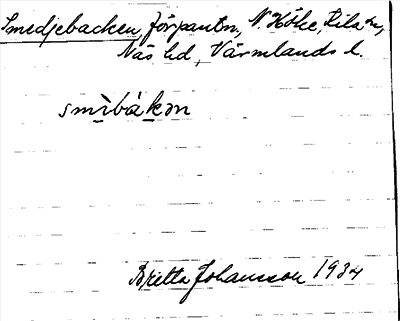 Smedjebacken, förpantn, N. Höke, Kila sn,
Näs hd, Värmlands l.
smìbàkən
Britta Johansson 1934